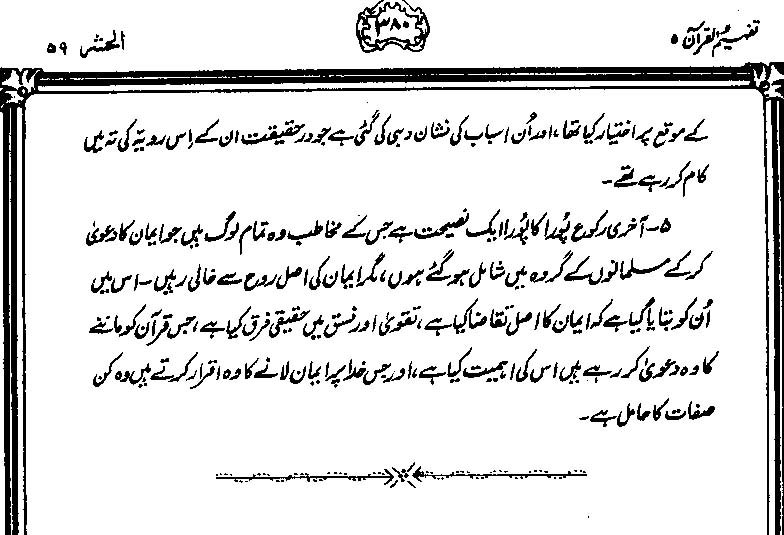 تفہیم القرآن ۵
۳۸۰
الحشر ۵۹
کے موقع پر اختیار کیا تھا، اور اُن اسباب کی نشان دہی کی گئی ہے جو درحقیقت ان کے اِس رویّہ کی تہ میں
کام کر رہے تھے۔
۵- آخری رکوع پُورا کا پُورا ایک نصیحت ہے جس کے مخاطب وہ تمام لوگ ہیں جو ایمان کا دعویٰ
کر کے مسلمانوں کے گروہ میں شامل ہو گئے ہوں، مگر ایمان کی اصل روح سے خالی رہیں۔ اس میں
اُن کو بتایا گیا ہے کہ ایمان کا اصل تقاضا کیا ہے، تقویٰ اور فسق میں حقیقی فرق کیا ہے، جس قرآن کو ماننے
کا وہ دعویٰ کر رہے ہیں اس کی اہمیت کیا ہے، اور جس خدا پر ایمان لانے کا وہ اقرار کرتے ہیں وہ کن
صفات کا حامل ہے۔